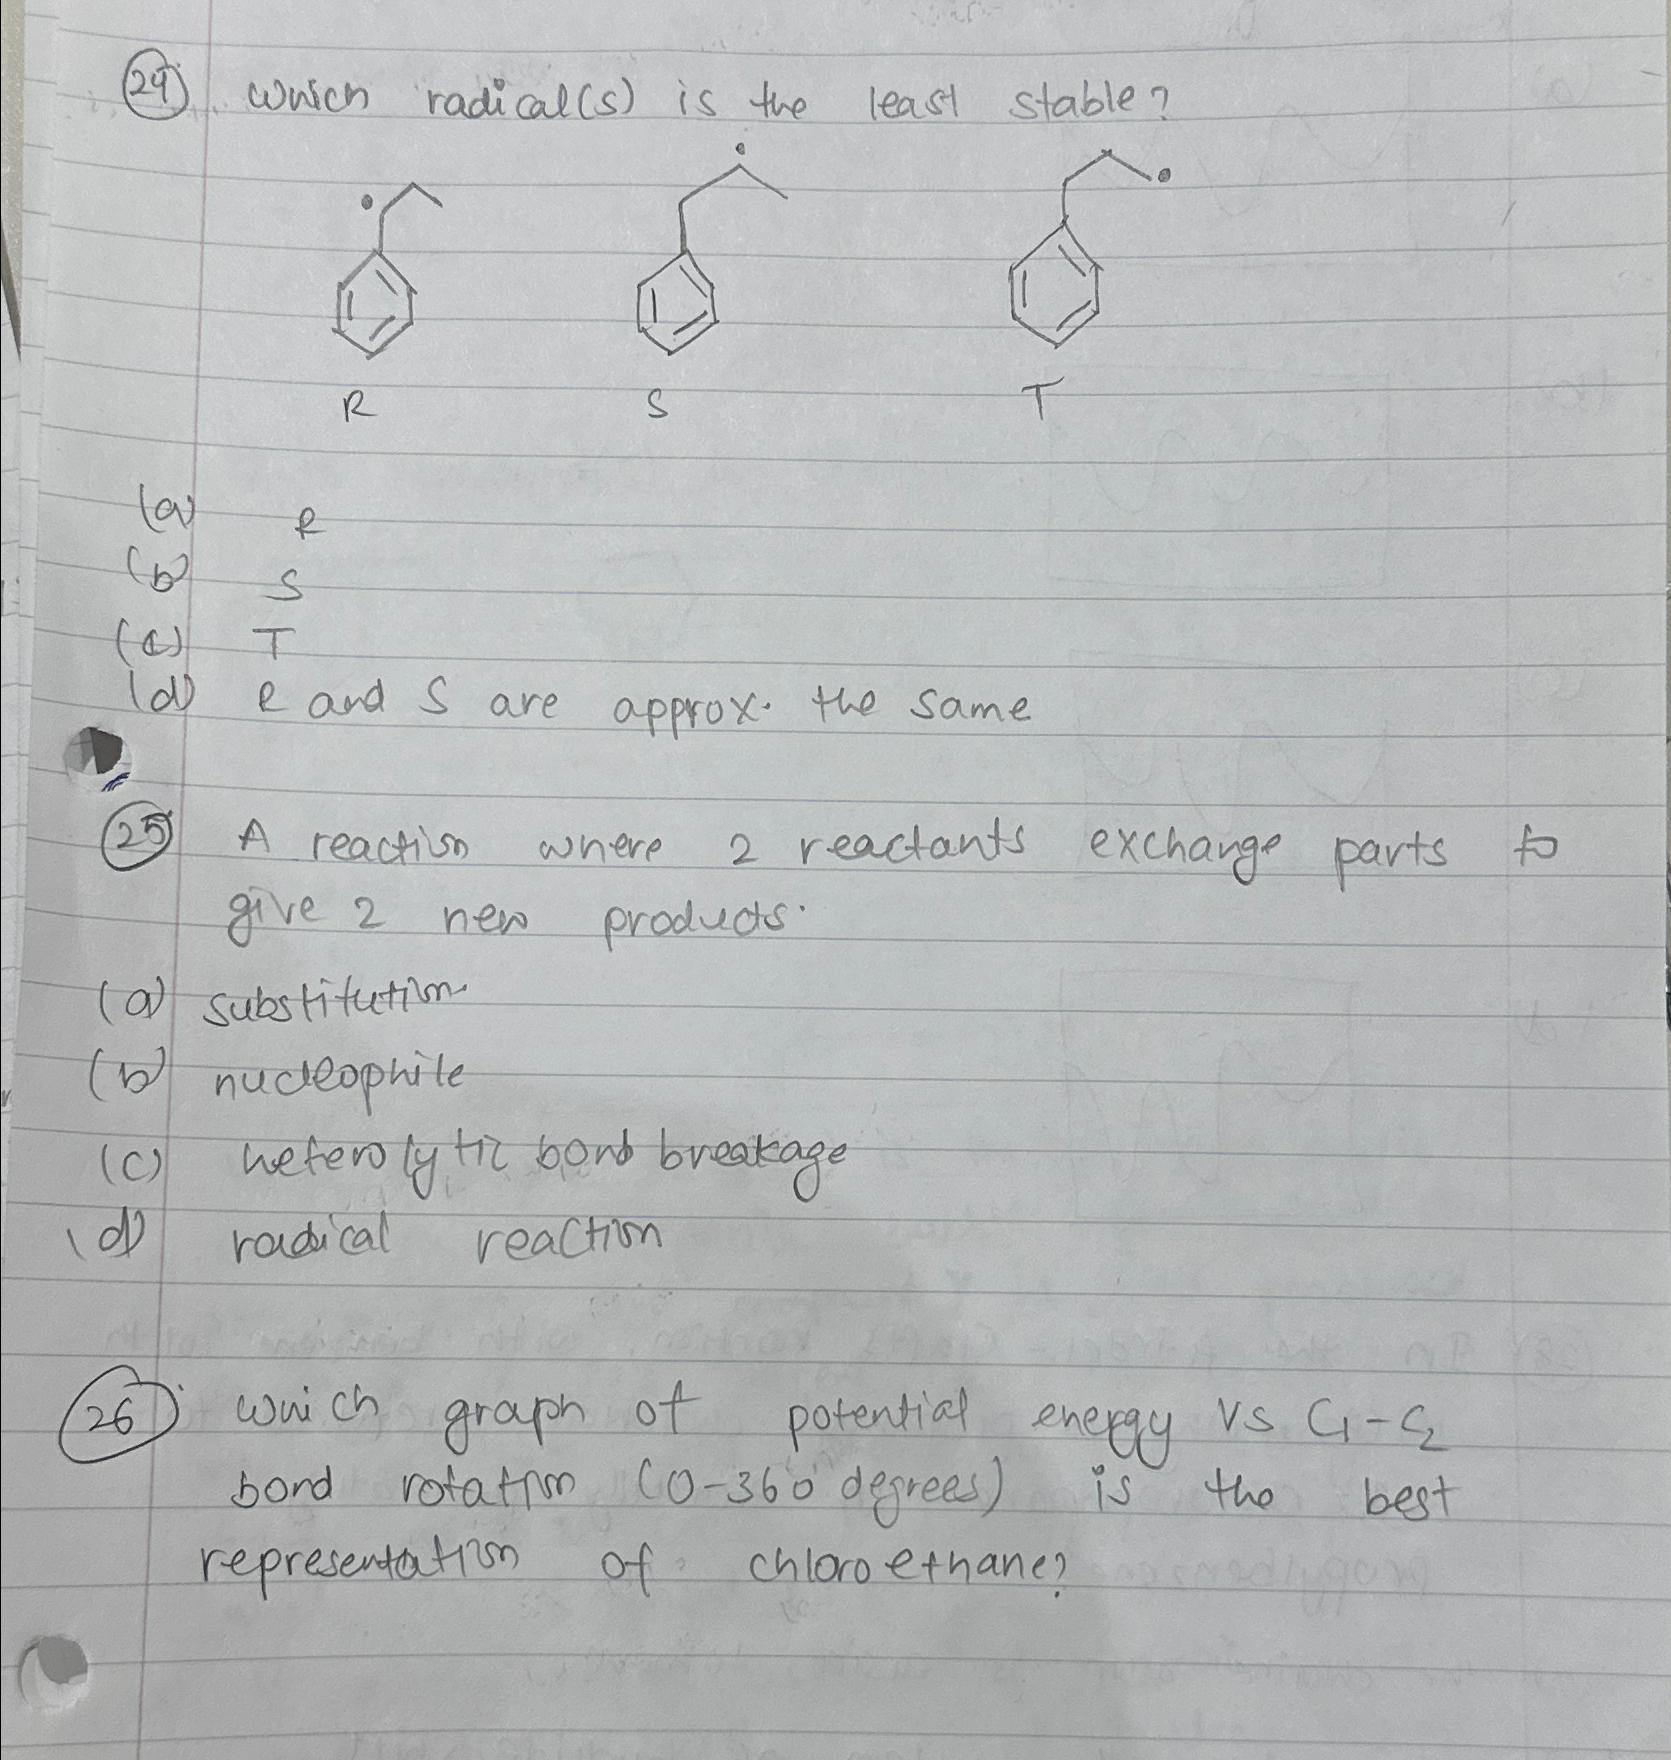 24 which radical(s) is the least stable?
R S T
(a) R
(b) S
(c) T
(d) R and S are approx. the same
25 A reaction where 2 reactants exchange parts to
give 2 new products.
(a) substitution
(b) nucleophile
(c) heterolytic bond breakage
(d) radical reaction
26 which graph of potential energy vs C1-C2
bond rotation (0-360 degrees) is the best
representation of chloroethane?